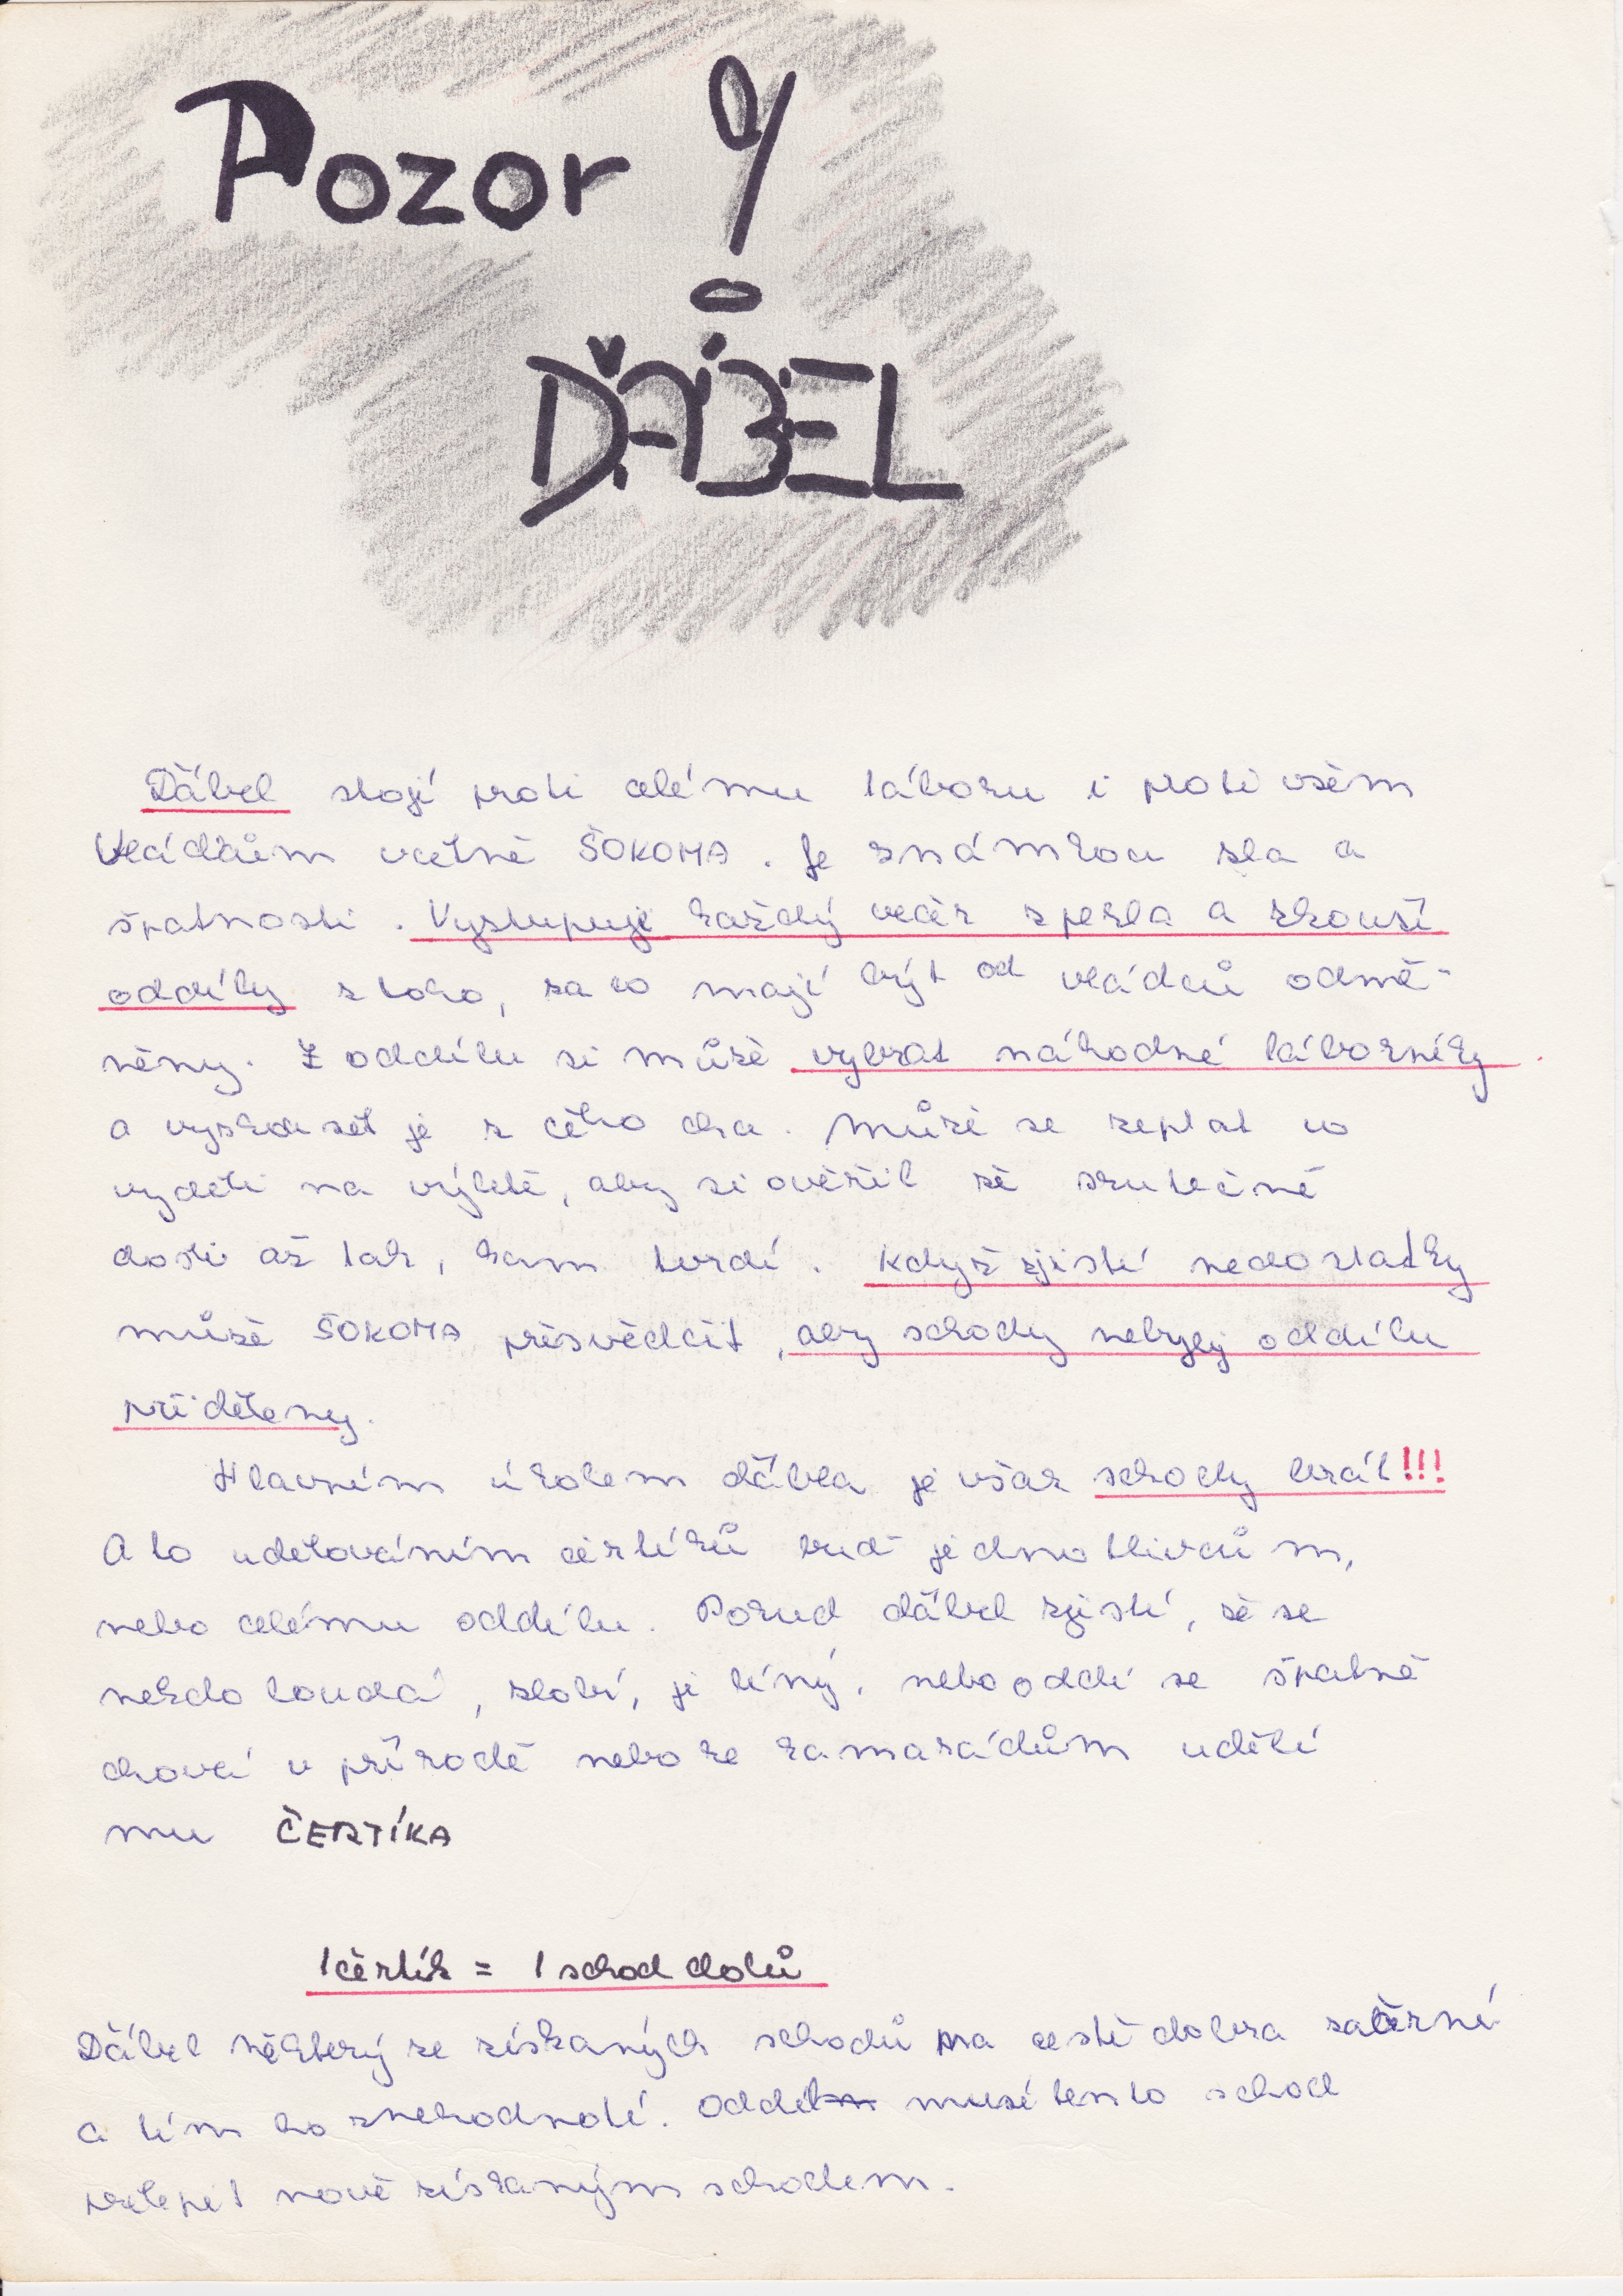 Pozor!
ĎÁBEL
Ďábel stojí proti celému táboru i proti všem
Vládcům včetně ŠOKOMA. Je známkou zla a
špatnosti. Vystupuje každý večer z pekla a zkouší
oddíly z toho, za co mají být od vládců odmě-
něny. Z oddílu si může vybrat náhodné táborníky
a vyzkoušet je z čeho chce. Může se zeptat co
vyděli na výletě, aby si ověřil že skutečně
došli až tak, kam tvrdí. Když zjistí nedostatky
může ŠOKOMA přesvědčit, aby schody nebyly oddílu
přiděleny.
Hlavním úkolem ďábla je však schody brát!!!
A to udělováním čertíků buď jednotlivcům,
nebo celému oddílu. Pokud ďábel zjistí, že se
někdo loudá, zlobí, je líný, nebo oddíl se špatně
chová v přírodě nebo ke kamarádům udělí
mu ČERTÍKA
1 čertík = 1 schod dolů
Ďábel některý ze získaných schodů na cestě dobra začerní
a tím ho znehodnotí. Oddíl musí tento schod
přelepit nově získaným schodem.